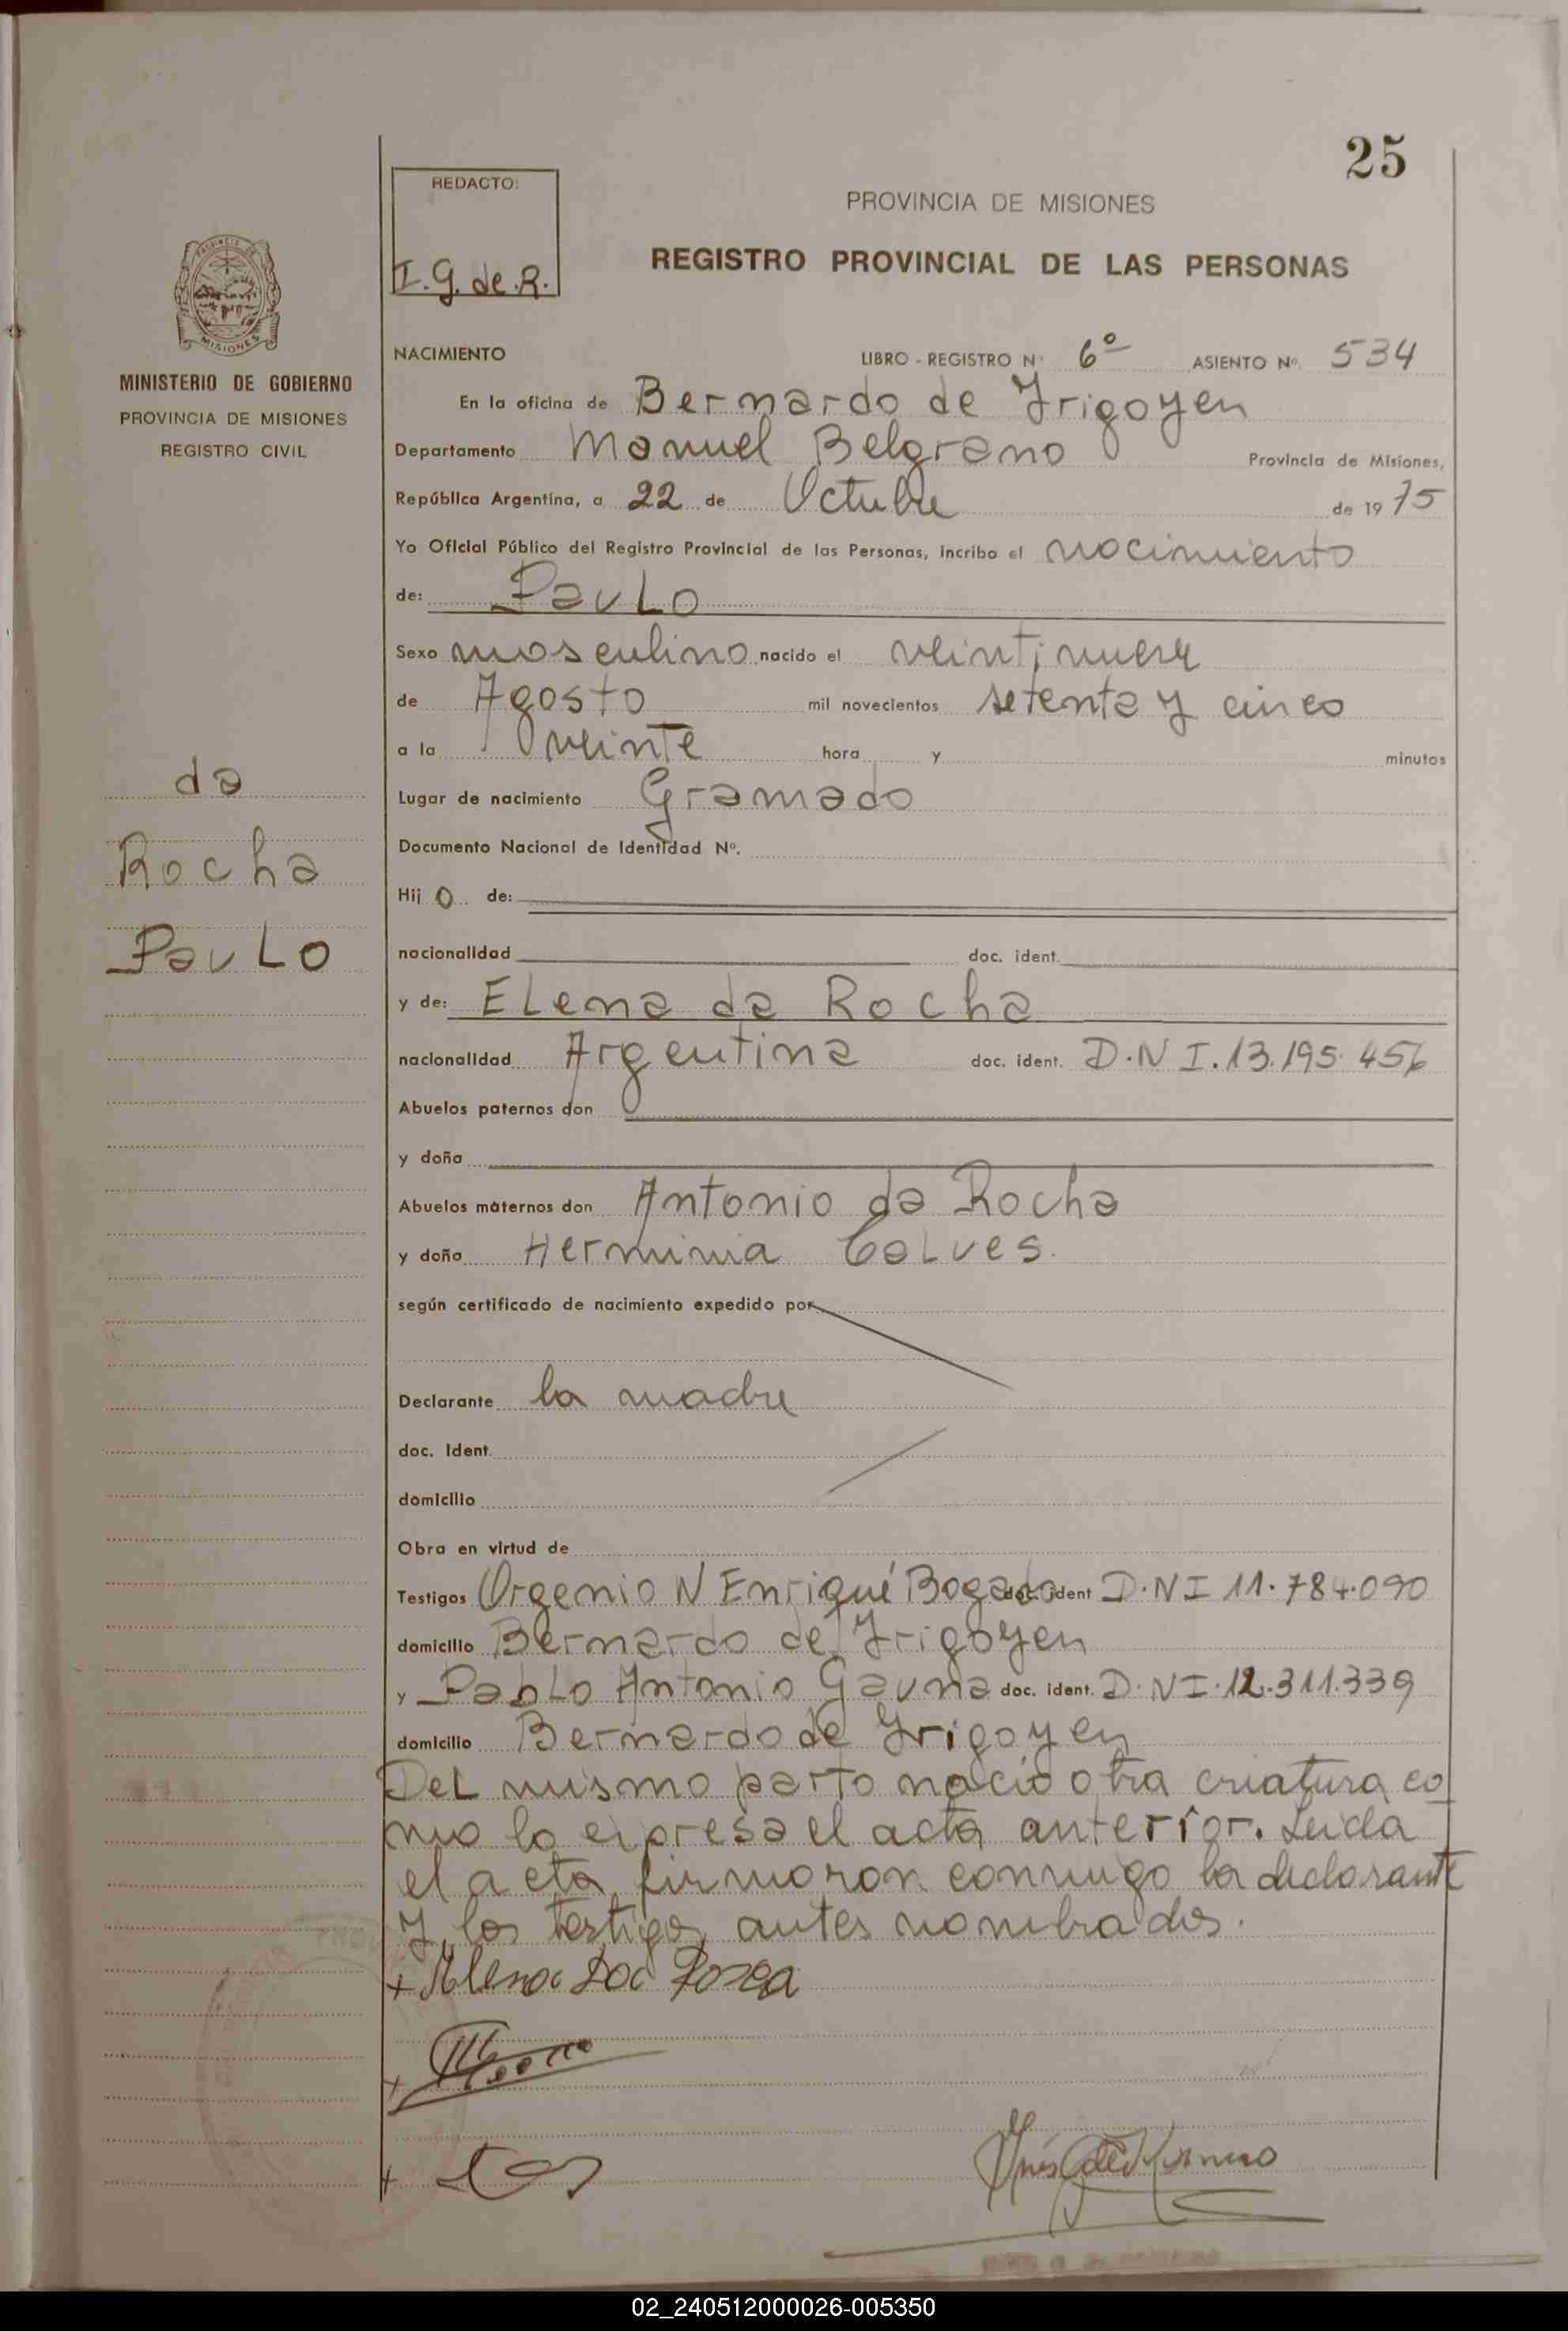 25
REDACTO:
I.G. de.R.
PROVINCIA DE MISIONES
REGISTRO PROVINCIAL DE LAS PERSONAS
MISIONES
MINISTERIO DE GOBIERNO
PROVINCIA DE MISIONES
REGISTRO CIVIL
NACIMIENTO LIBRO - REGISTRO Nº 6º ASIENTO Nº. 534
En la oficina de Bernardo de Yrigoyen
Departamento Manuel Belgrano Provincia de Misiones,
República Argentina, a 22 de Octubre de 1975
Yo Oficial Público del Registro Provincial de las Personas, incribo el nacimiento
de: PauLo
Sexo masculino nacido el veintinueve
de Agosto mil novecientos setenta y cinco
a la veinte hora y minutos
Lugar de nacimiento Gramado
Documento Nacional de Identidad Nº.
da
Rocha
PauLo
Hijo de:
nacionalidad doc. ident.
y de: ELena da Rocha
nacionalidad Argentina doc. ident. D.N I.13.195.456
Abuelos paternos don
y doña
Abuelos maternos don Antonio da Rocha
y doña Herminia CaLves.
según certificado de nacimiento expedido por
Declarante la madre
doc. Ident.
domicilio
Obra en virtud de
Testigos Orgenio N Enrique Bogado doc. ident D.N I 11.784.090
domicilio Bernardo de Yrigoyen
y PabLo Antonio Gauna doc. ident. D.N I.12.311.339
domicilio Bernardo de Yrigoyen
DeL mismo parto nació otra criatura co
mo lo expresa el acta anterior. Leida
el acta firmaron conmigo la declarante
y los testigos antes nombrados.
+
+
+
02_240512000026-005350